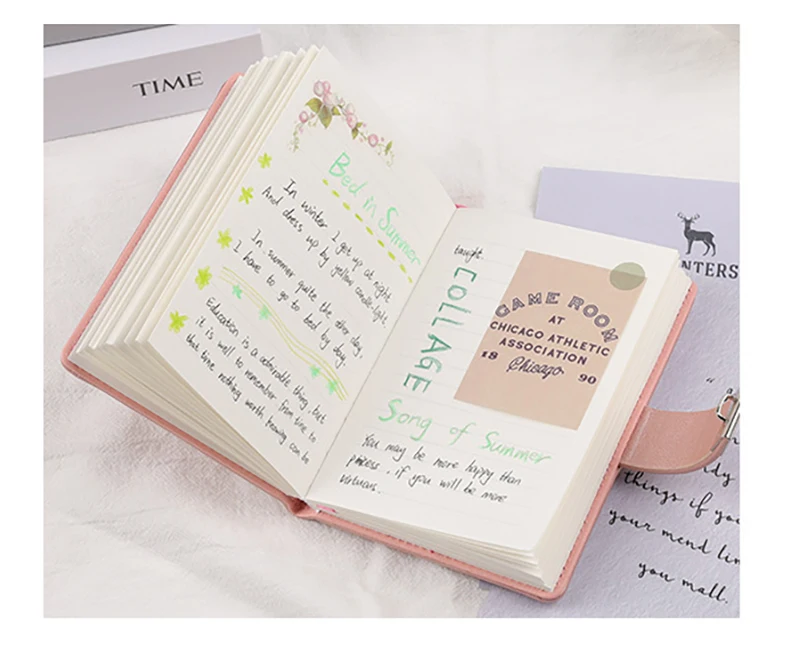 TIME
Bed in Summer
In winter I get up at night
And dress up by yellow candle-light,
In summer quite the other day,
I have to go to bed by day.
Education is a admirable thing, but
it is well to remember from time to
that time nothing worth knowing can be
taught.
COLLAGE
GAME ROOM
AT
CHICAGO ATHLETIC
ASSOCIATION
18 Chicago 90
Song of Summer
You may be more happy than
princess, if you will be more
virtuous.
NTERS
things if yo
your mend lin
you mall.